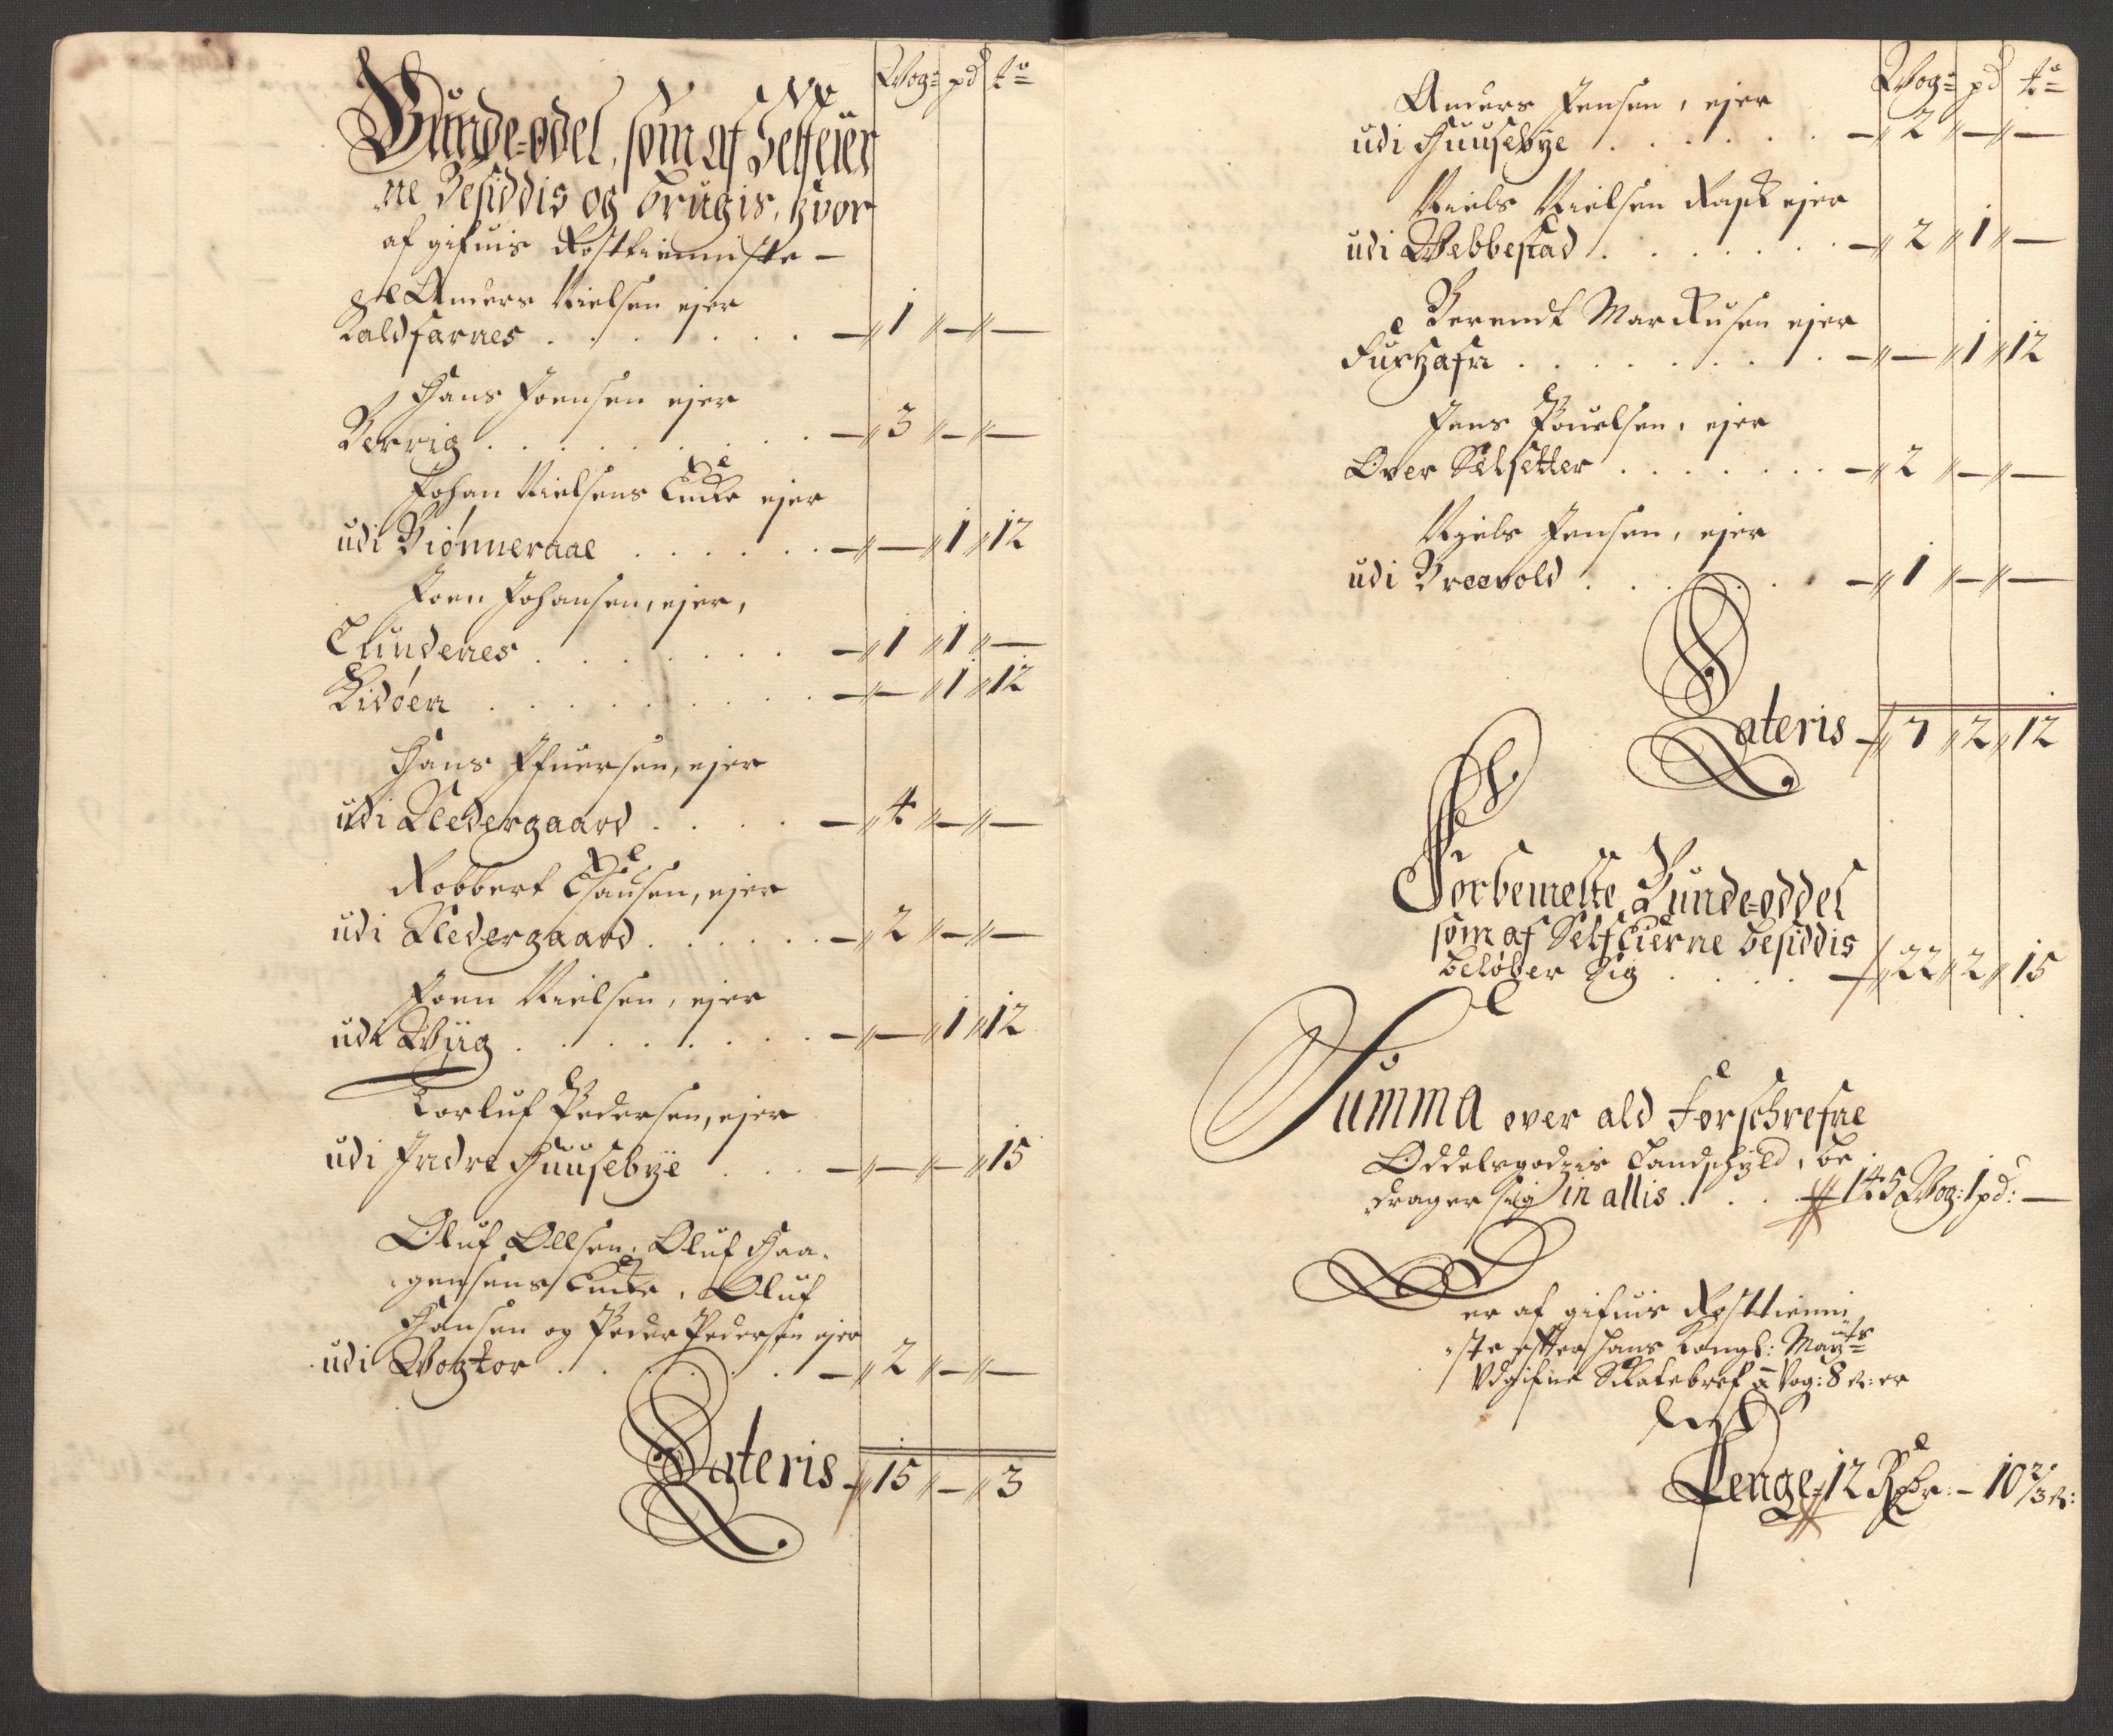 Wog: pd ℔
Bunde-odel, som af Selfeier
ne Besiddis og brugis, hvor
af gifuis Rostienniste —
Anders Nielsen ejer
Kaldfarnes . . . . . . — 1 — —
Hans Joensen ejer
Berrig . . . . . . . — 3 — —
Johan Nielsens Encke ejer
udi Biønneraae . . . . . . — — 1 12
Joen Johansen, ejer,
Tunderes . . . . . . . — 1 1 —
Kidøen . . . . . . . . — — 1 12
Hans Ifuersen, ejer
udi Nedergaard . . . . — 4 — —
Robbert Clausen, ejer
udi Nedergaard . . . . . . — 2 — —
Joen Nielsen, ejer
udi Wiig . . . . . . . — — 1 12
Torluf Pedersen, ejer
udi Indre Huusebye . . . — — — 15
Oluf Ollsen, Oluf Haa-
gensens Encke, Oluf
Hansen og Peder Pedersen ejer
udi Wogtor . . . . . . — 2 — —
Lateris — 15 — 3
Wog: pd ℔
Anders Jensen, ejer
udi Huusebye . . . . . . — 2 — —
Niels Nielsen Rask ejer
udi Webbestad . . . . . . — 2 1 —
Berendt Marckusen ejer
Furhafn . . . . . . . — — 1 12
Jens Pouelsen, ejer
Over Selsetter . . . . . . . — 2 — —
Niels Jensen, ejer
udi Breevold . . . . . — 1 — —
Lateris — 7 2 12
Forbemelte Bunde-oddel
som af Selfeierne besiddis
beløber Sig . . . . — 22 2 15
Summa over ald Forschrefne
Oddelsgodzis Landschyld, be
drager sig in allis . . . 145 Wog: 1 pd: —
er af gifuis Rosttienni
ste efter Hans Kongl: Mayts
Udgifne Skatebref à Vog: 8 s: er
Penge 12 Rdr: - 10 2/3 s: